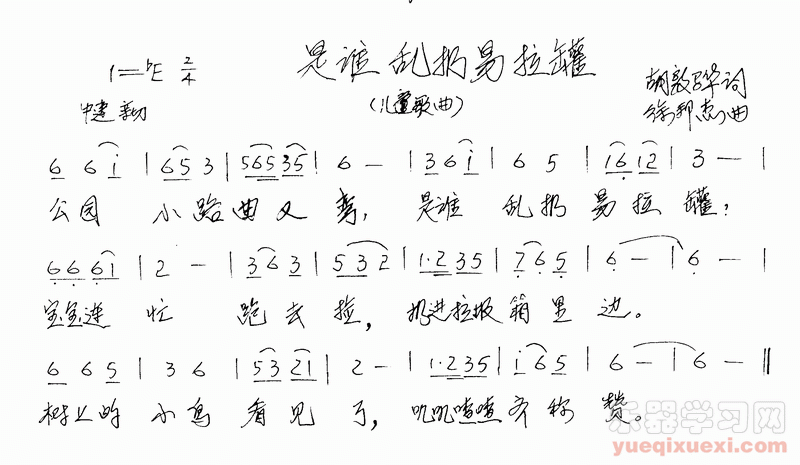 1=♭E 2/4 是谁乱扔易拉罐
(儿童歌曲)
胡敦骅词
徐邦杰曲
6 6 i | 6 5 3 | 5653 5 | 6 – | 3 6 i | 6 5 | 16 12 | 3 – |
公园 小路曲又弯, 是谁 乱扔易拉罐?
6 6 6 i | 2 – | 3 6 3 | 5 3 2 | 1·2 35 | 7 6 5 | 6 – | 6 – |
宝宝连忙 跑去捡, 扔进垃圾箱里边。
6 6 5 | 3 6 | 53 21 | 2 – | 1·2 35 | i 6 5 | 6 – | 6 – ‖
树上的小鸟看见了, 叽叽喳喳齐称赞。
乐器学习网
yueqixuexi.com